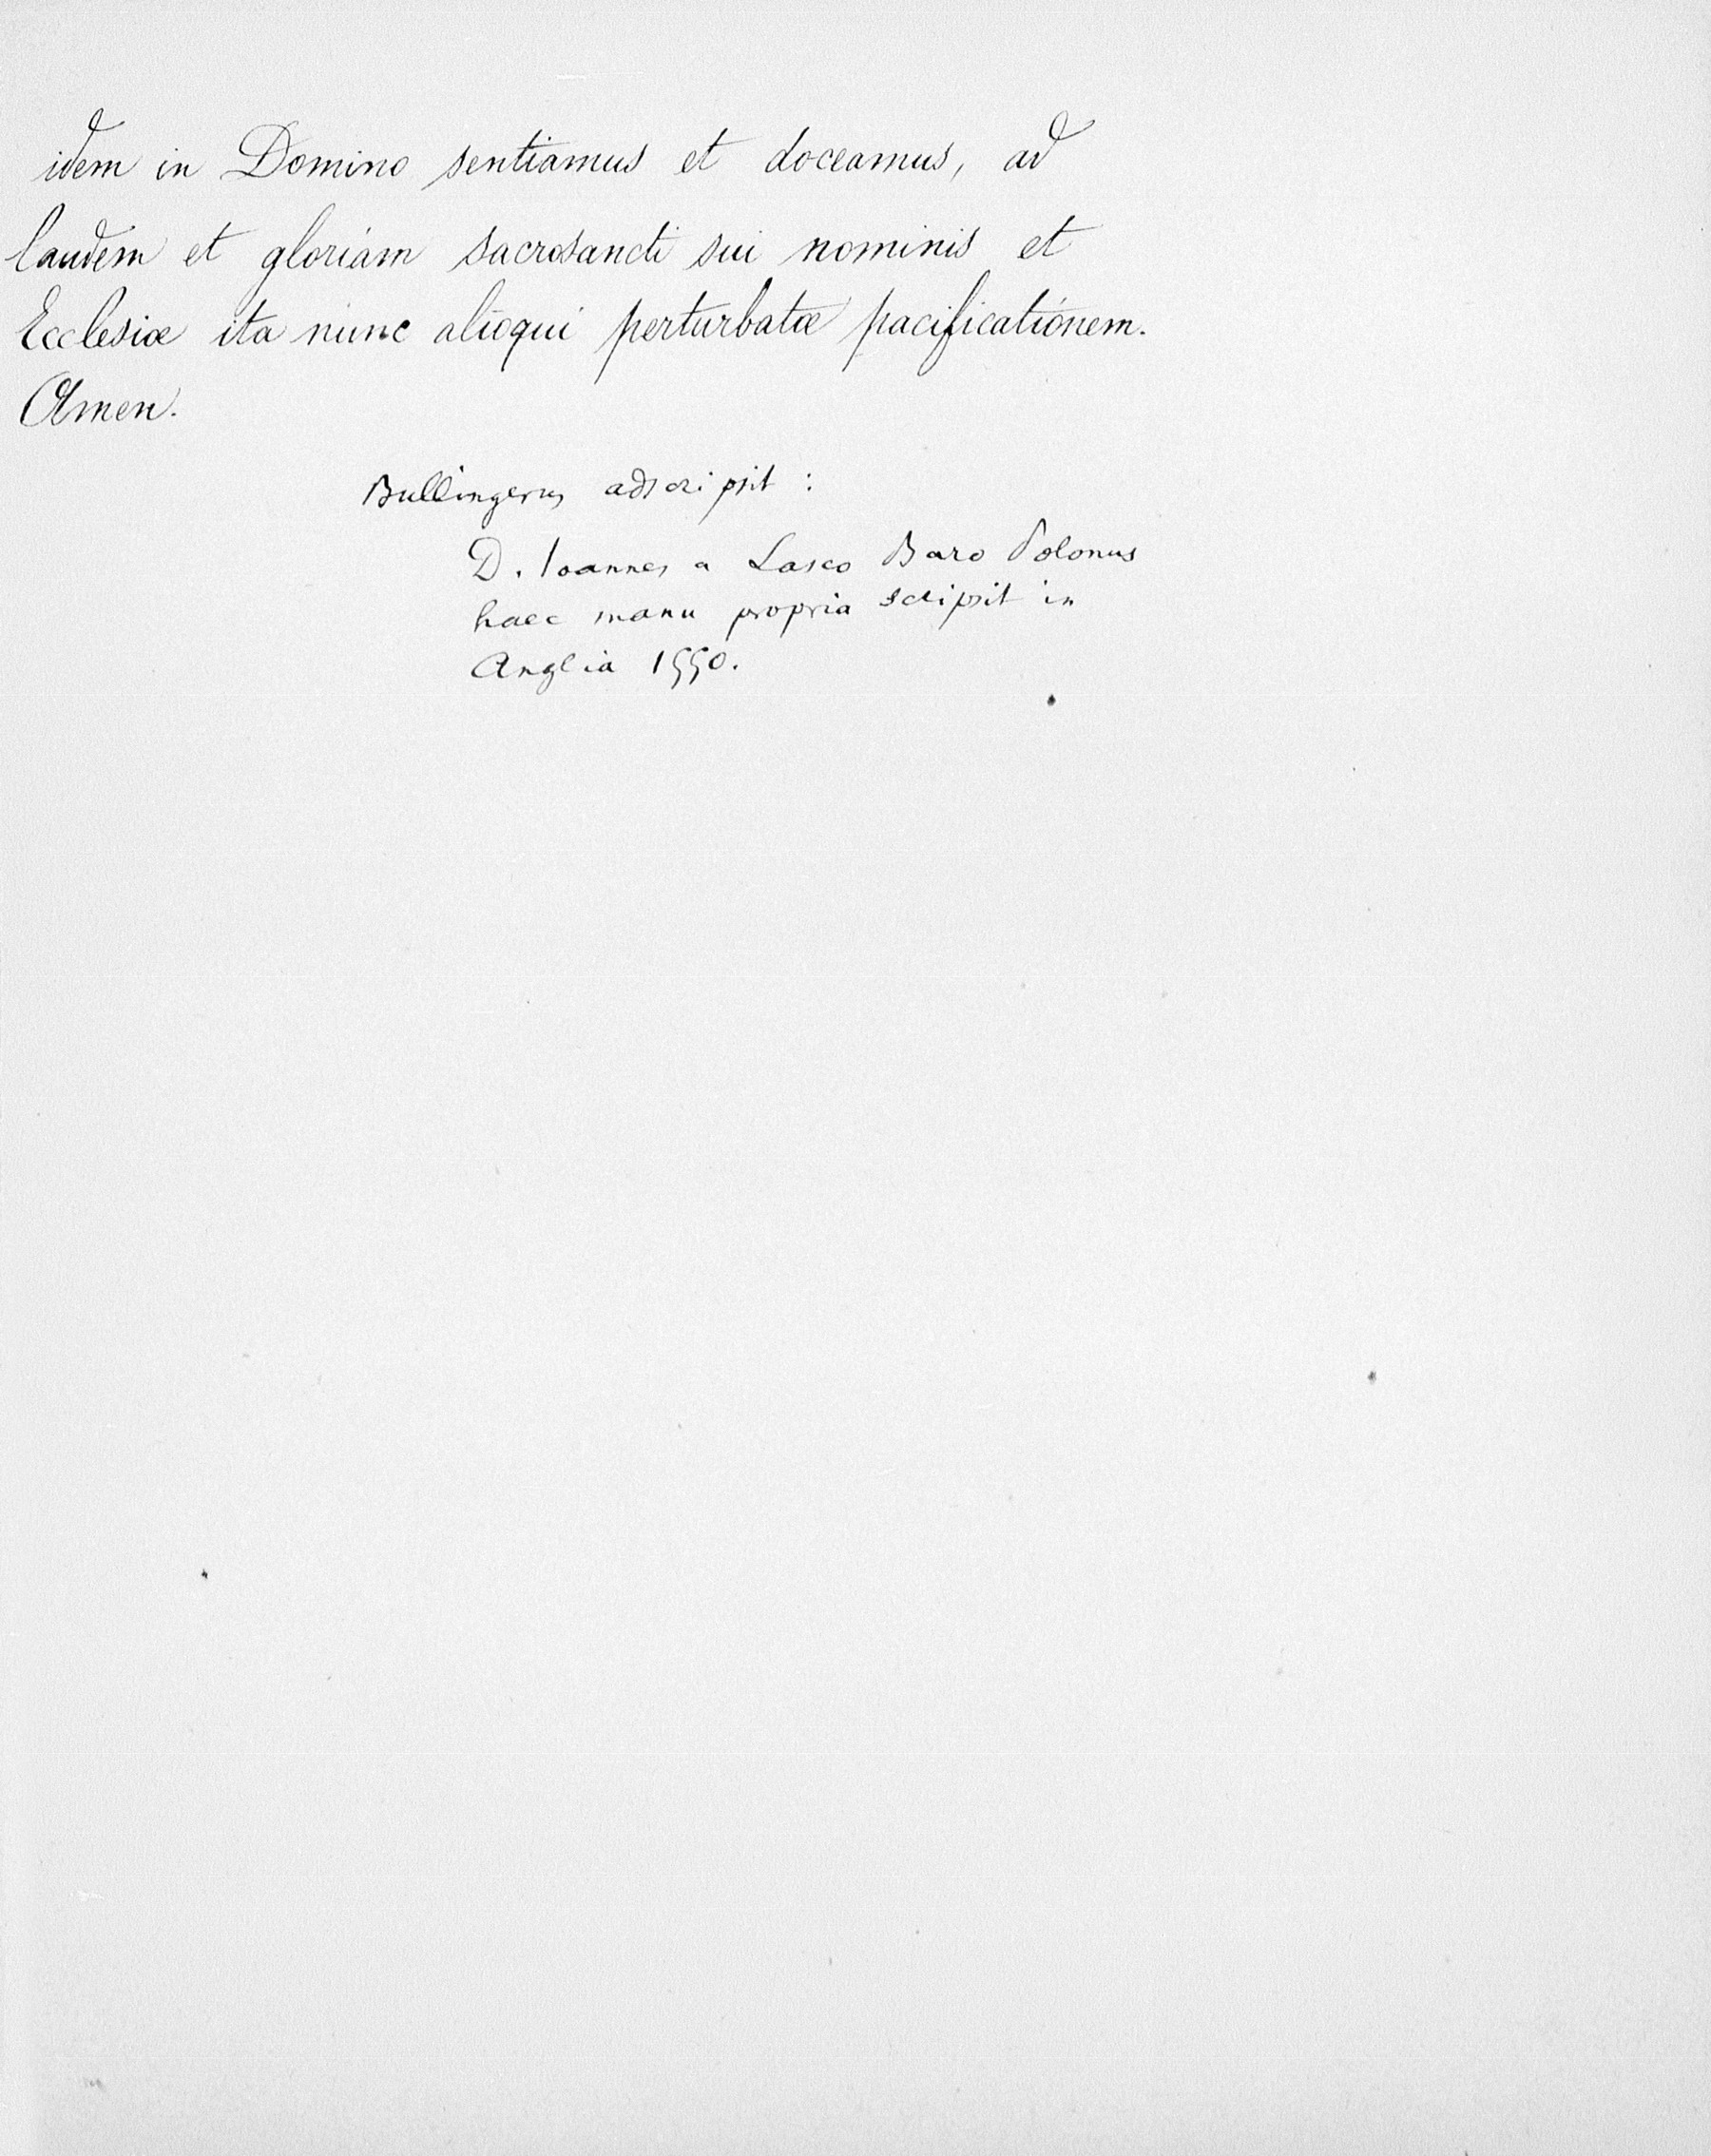 idem in Domino sentiamus et doceamus, ad
laudem et gloriam sacrosancti sui nominis et
Ecclesiæ ita nunc alioqui perturbatæ pacificationem.
Amen.
Bullingerus adscripsit :
D. Ioannes a Lasco Baro Polonus
haec manu propria scripsit in
Anglia 1550.